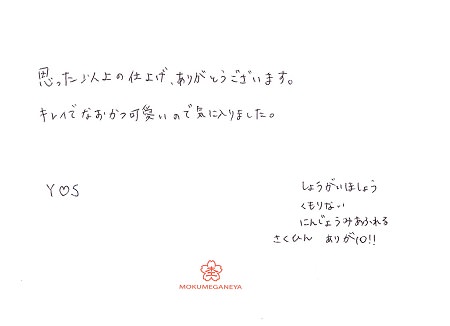 思った以上の仕上げ、ありがとうございます。
キレイでなおかつ可愛いので気に入りました。
Y♡S
しょうがいほしょう
くもりない
にんじょうみあふれる
さくひん ありが10!!
杢
MOKUMEGANEYA